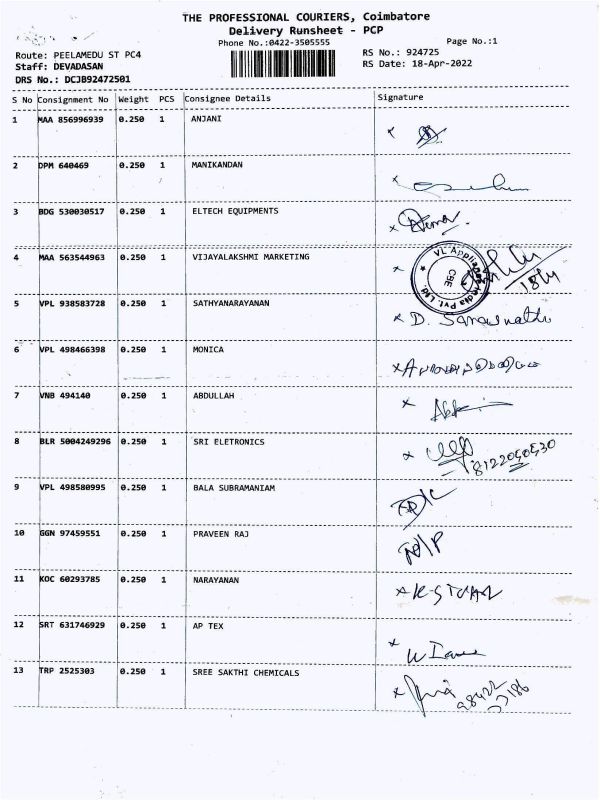 THE PROFESSIONAL COURIERS, Coimbatore
Delivery Runsheet - PCP
Phone No.:0422-3505555
Page No.:1
Route: PEELAMEDU ST PC4
RS No.: 924725
Staff: DEVADASAN
RS Date: 18-Apr-2022
DRS No.: DCJB92472501
S No Consignment No Weight PCS Consignee Details Signature
1 MAA 856996939 0.250 1 ANJANI x
2 DPM 640469 0.250 1 MANIKANDAN x
3 BDG 530030517 0.250 1 ELTECH EQUIPMENTS x
4 MAA 563544963 0.250 1 VIJAYALAKSHMI MARKETING x
VL Appliances India Pvt. Ltd. CBE
18/4
5 VPL 938583728 0.250 1 SATHYANARAYANAN x D.
6 VPL 498466398 0.250 1 MONICA x
7 VNB 494140 0.250 1 ABDULLAH x
8 BLR 5004249296 0.250 1 SRI ELETRONICS x
9 VPL 498580995 0.250 1 BALA SUBRAMANIAM
10 GGN 97459551 0.250 1 PRAVEEN RAJ
11 KOC 60293785 0.250 1 NARAYANAN x
12 SRT 631746929 0.250 1 AP TEX x
13 TRP 2525303 0.250 1 SREE SAKTHI CHEMICALS x
98422